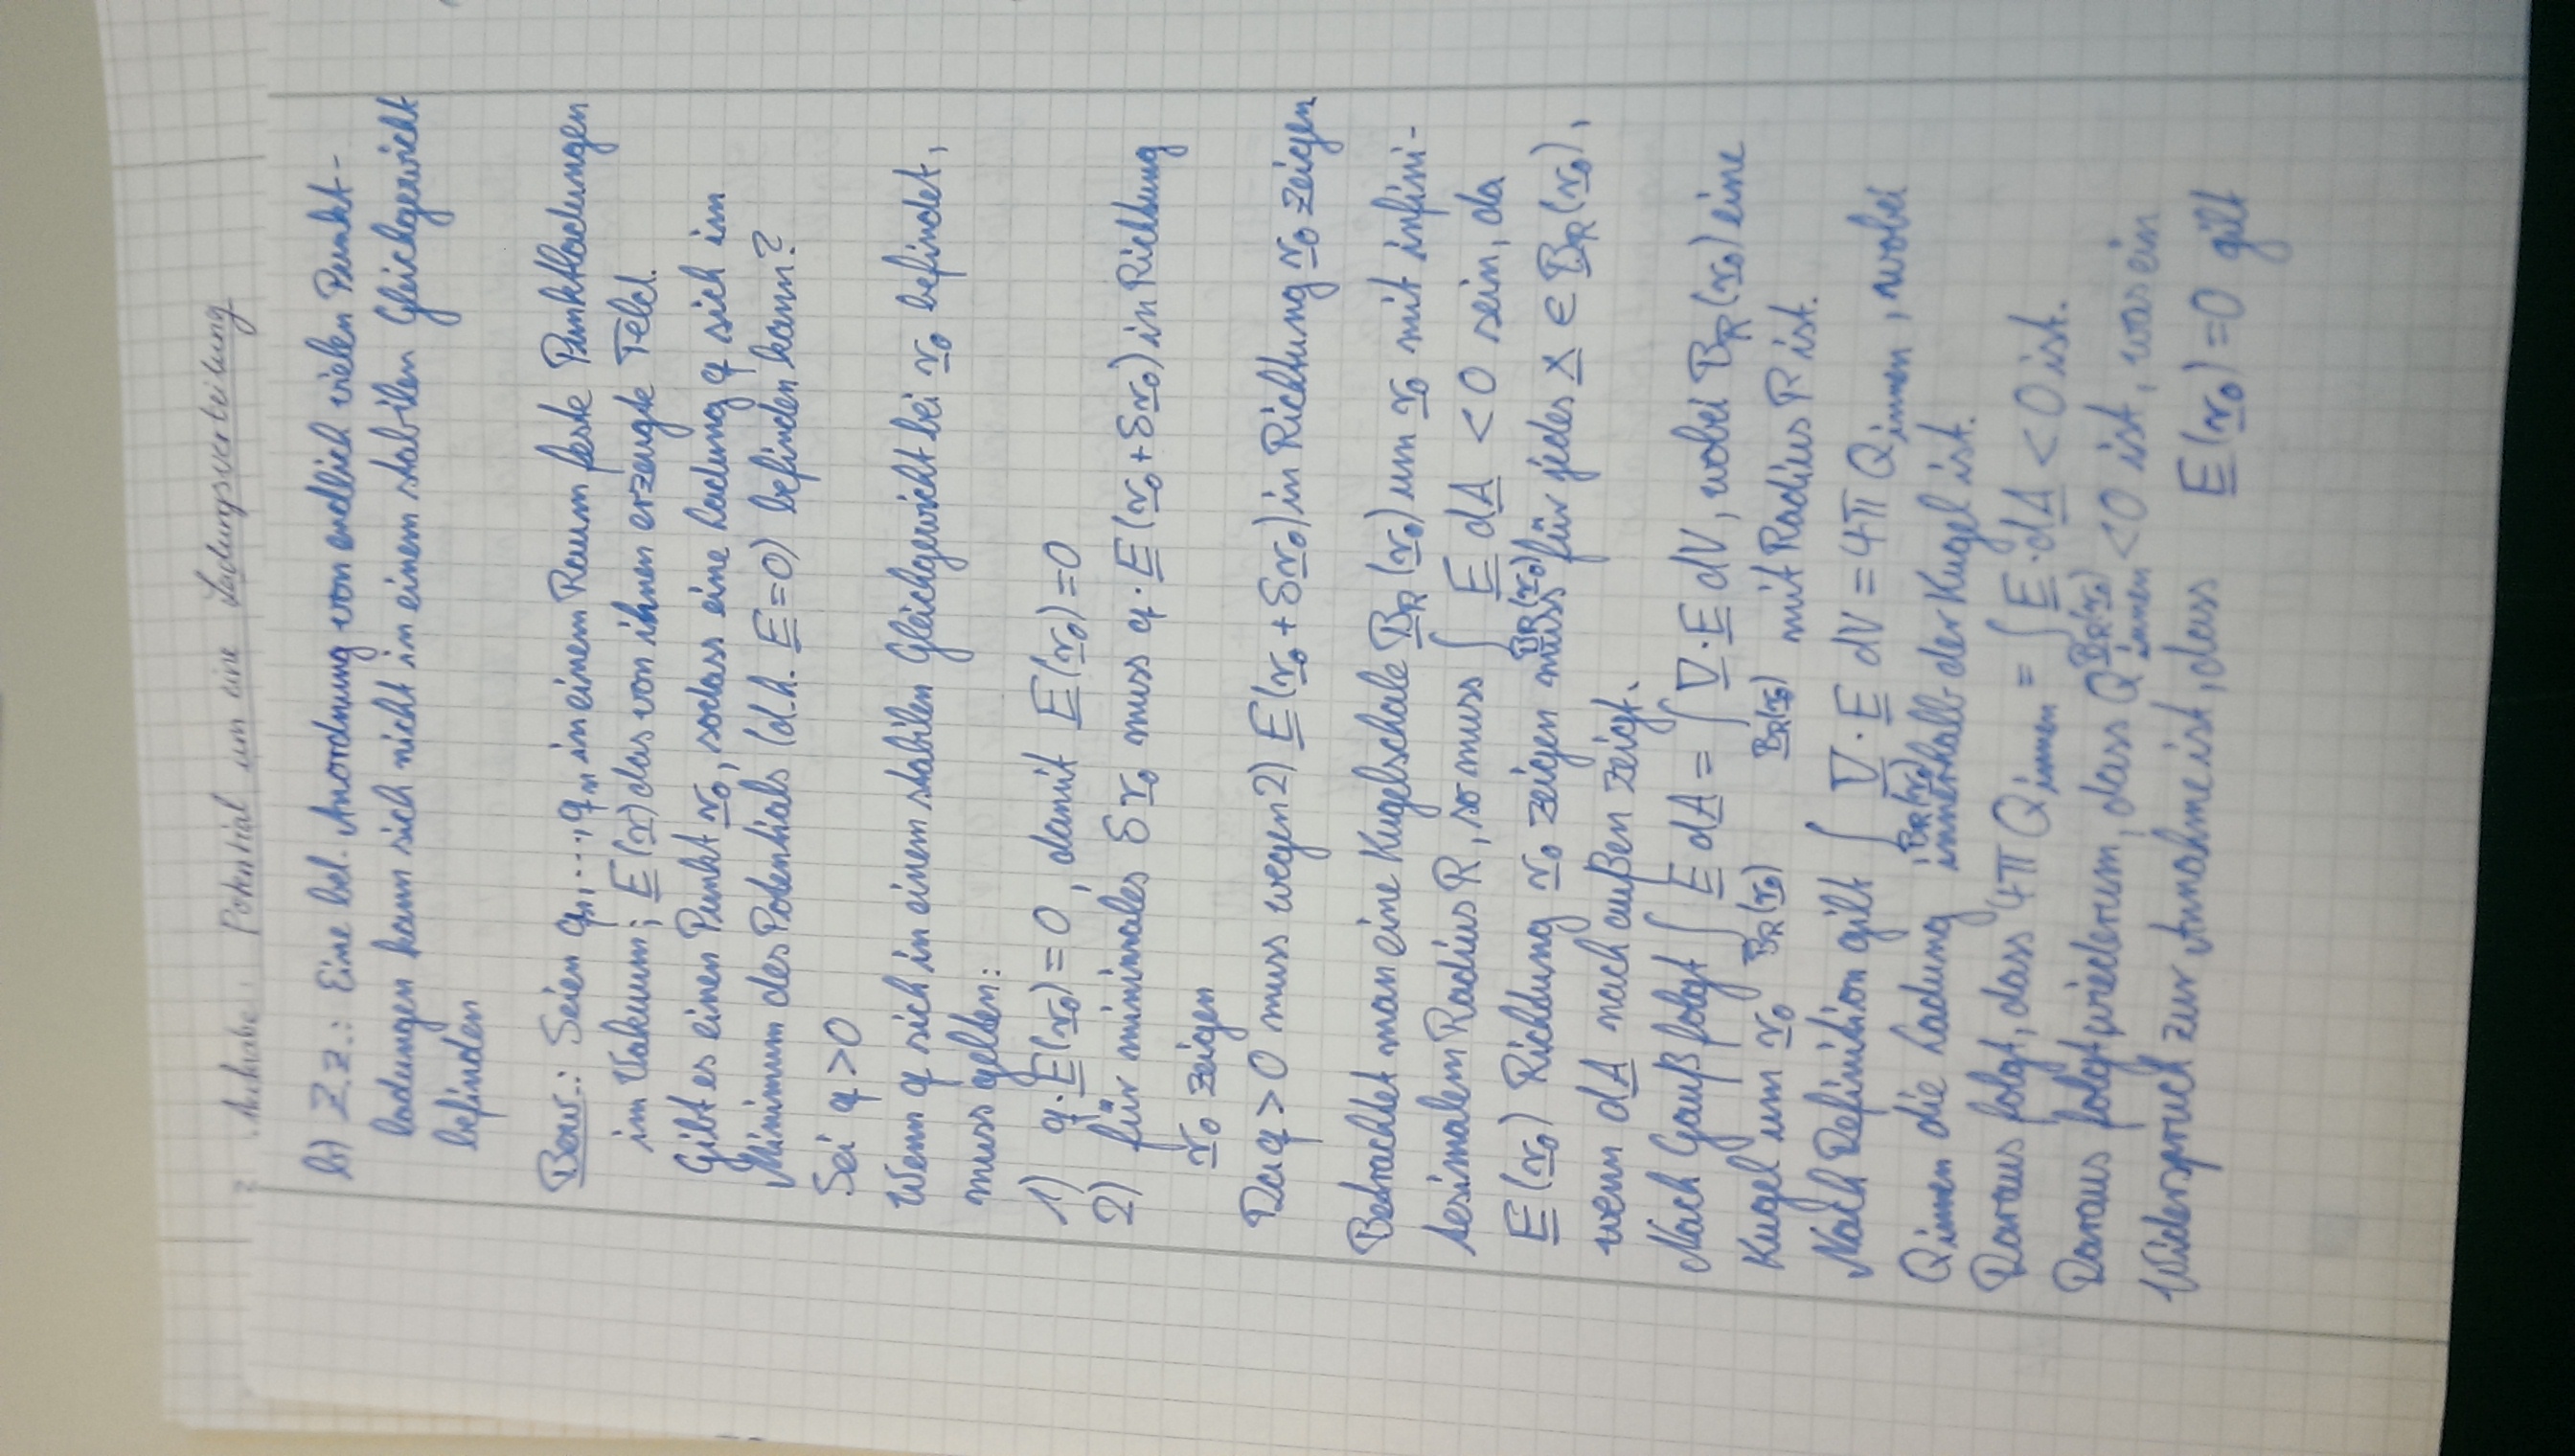 Aufgabe: Potential um eine Ladungsverteilung
b) Z.z.: Eine bel. Anordnung von endlich vielen Punkt-
ladungen kann sich nicht in einem stabilen Gleichgewicht
befinden
Bew.: Seien q₁,...,qₙ in einem Raum feste Punktladungen
im Vakuum; E(r) das von ihnen erzeugte Feld.
Gibt es einen Punkt r₀, sodass eine Ladung q sich im
Minimum des Potentials (d.h. E=0) befinden kann?
Sei q>0
Wenn q sich in einem stabilen Gleichgewicht bei r₀ befindet,
muss gelten:
1) q·E(r₀)=0, damit E(r₀)=0
2) für minimales δr₀ muss q·E(r₀+δr₀) in Richtung
r₀ zeigen
Da q>0 muss wegen 2) E(r₀+δr₀) in Richtung r₀ zeigen
Betrachtet man eine Kugelschale B_R(r₀) um r₀ mit infini-
tesimalem Radius R, so muss ∫_{B_R(r₀)} E dA <0 sein, da
E(r₀) Richtung r₀ zeigen muss für jedes x ∈ B_R(r₀),
wenn dA nach außen zeigt.
Nach Gauß folgt ∫_{B_R(r₀)} E dA = ∫_{B_R(r₀)} ∇·E dV, wobei B_R(r₀) eine
Kugel um r₀ mit Radius R ist.
Nach Definition gilt ∫_{B_R(r₀)} ∇·E dV = 4π Q_innen, wobei
Q_innen die Ladung innerhalb der Kugel ist.
Daraus folgt, dass 4π Q_innen = ∫_{B_R(r₀)} E·dA <0 ist.
Daraus folgt wiederum, dass Q_innen <0 ist, was ein
Widerspruch zur Annahme ist, dass E(r₀)=0 gilt